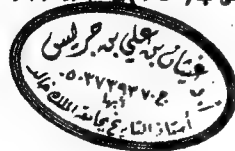 أ.د. غيثان بن علي بن جريس
ج: ٠٥٠٣٧٣٩٣٧٠
أبها
أستاذ التاريخ بجامعة الملك خالد